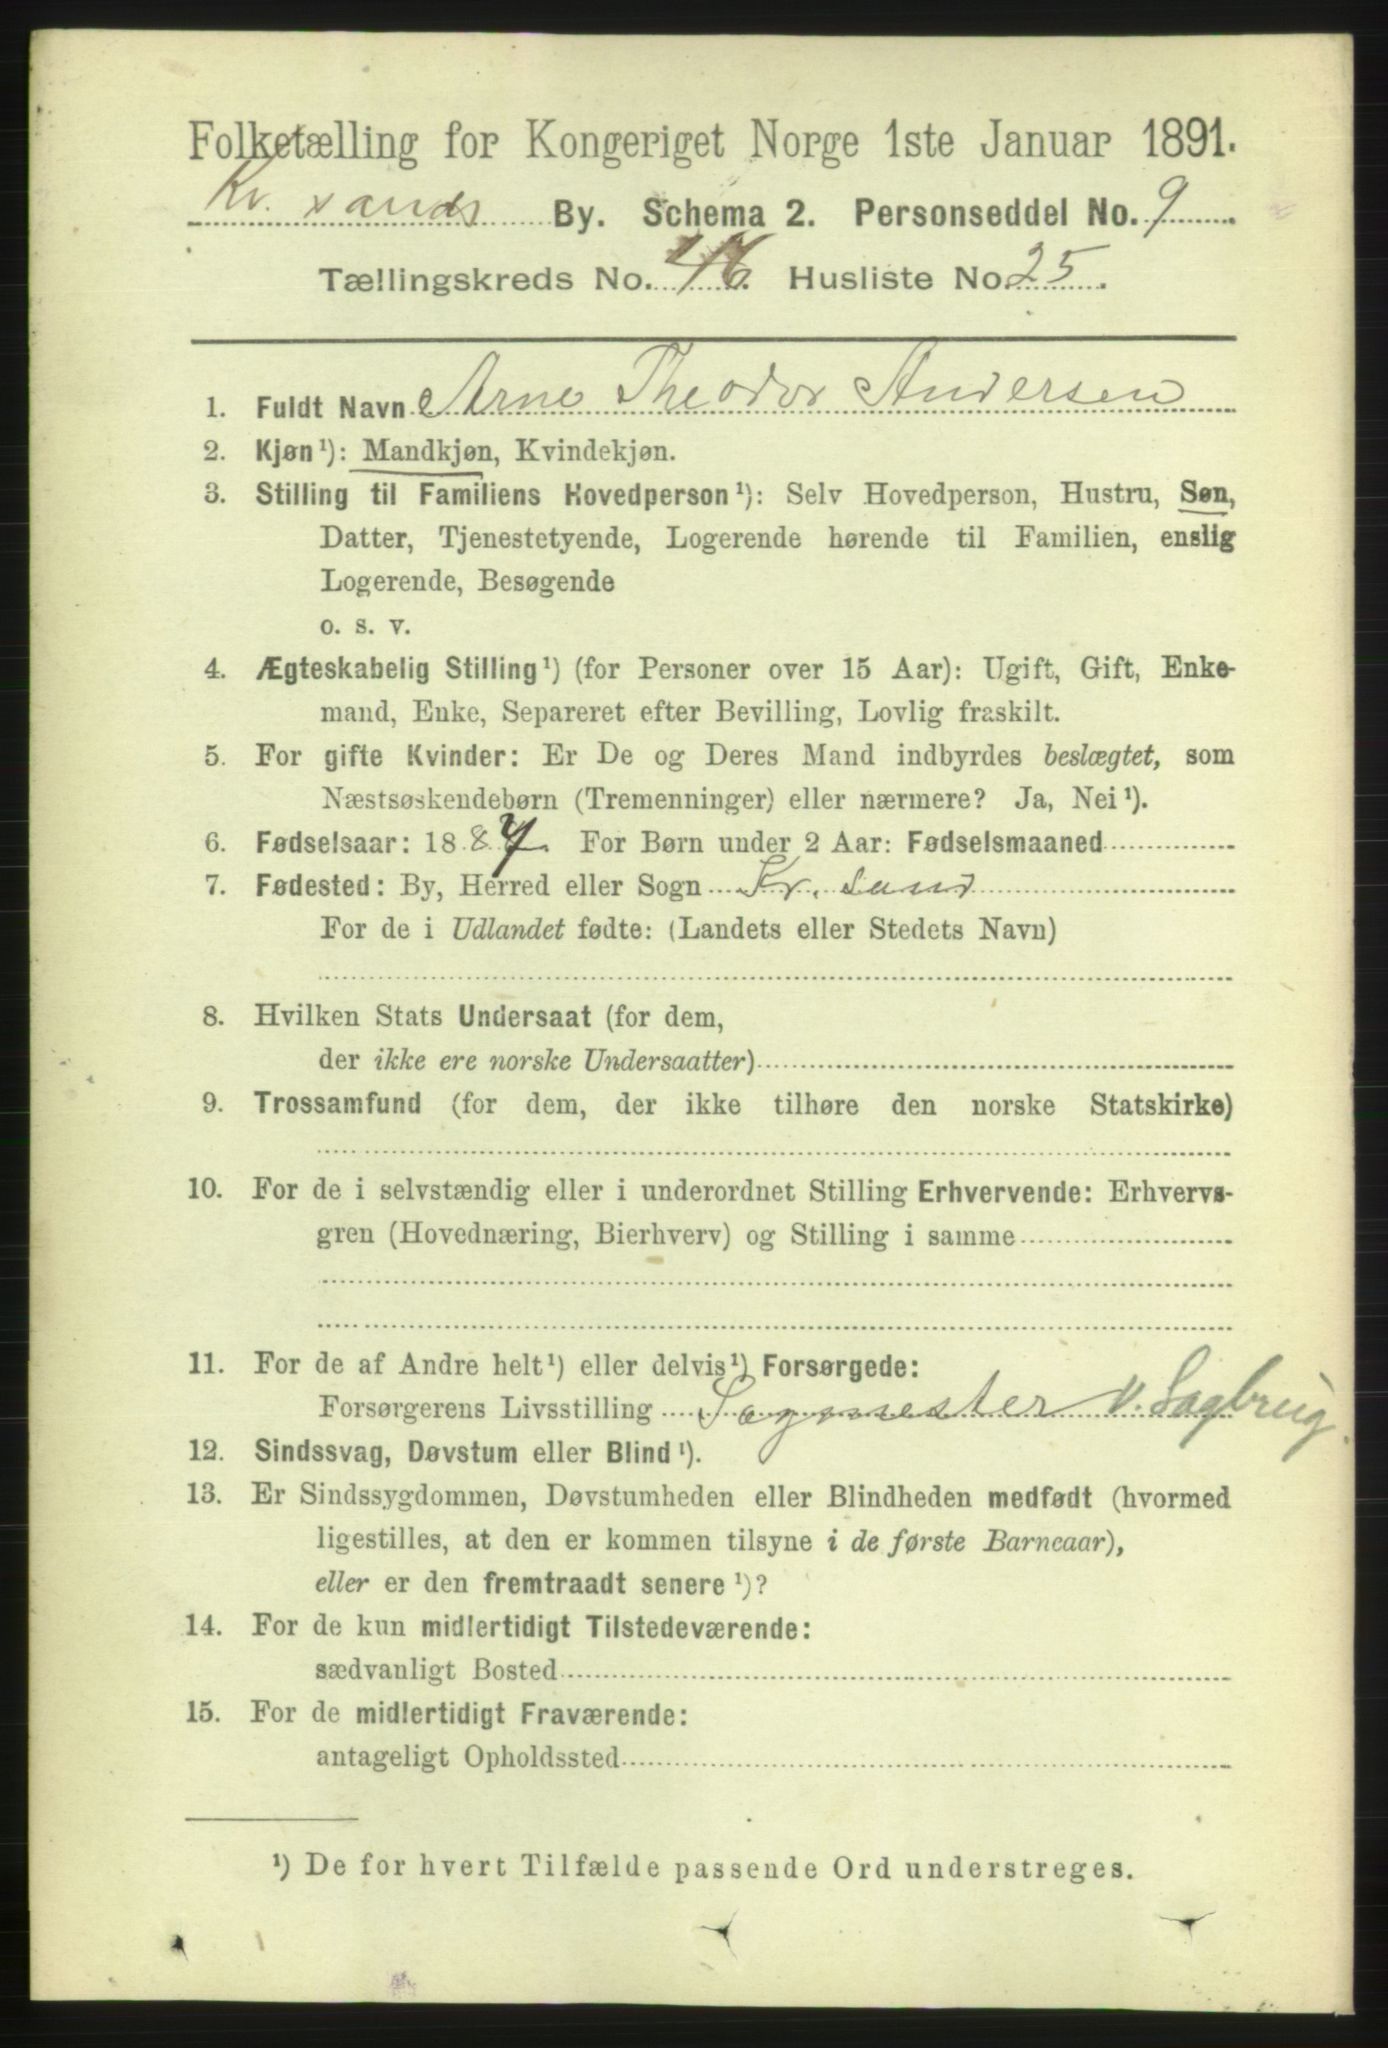 Folketælling for Kongeriget Norge 1ste Januar 1891.
Kr. sands By. Schema 2. Personseddel No. 9
Tællingskreds No. 46. Husliste No. 25.
1. Fuldt Navn Arne Theodor Andersen
2. Kjøn¹): Mandkjøn, Kvindekjøn.
3. Stilling til Familiens Hovedperson¹): Selv Hovedperson, Hustru, Søn,
Datter, Tjenestetyende, Logerende hørende til Familien, enslig
Logerende, Besøgende
o. s. v.
4. Ægteskabelig Stilling¹) (for Personer over 15 Aar): Ugift, Gift, Enke-
mand, Enke, Separeret efter Bevilling, Lovlig fraskilt.
5. For gifte Kvinder: Er De og Deres Mand indbyrdes beslægtet, som
Næstsøskendebørn (Tremenninger) eller nærmere? Ja, Nei¹).
6. Fødselsaar: 1887. For Børn under 2 Aar: Fødselsmaaned
7. Fødested: By, Herred eller Sogn Kr. sand
For de i Udlandet fødte: (Landets eller Stedets Navn)
8. Hvilken Stats Undersaat (for dem,
der ikke ere norske Undersaatter)
9. Trossamfund (for dem, der ikke tilhøre den norske Statskirke)
10. For de i selvstændig eller i underordnet Stilling Erhvervende: Erhvervs-
gren (Hovednæring, Bierhverv) og Stilling i samme
11. For de af Andre helt¹) eller delvis¹) Forsørgede:
Forsørgerens Livsstilling Sagmester v. Sagbrug.
12. Sindssvag, Døvstum eller Blind¹).
13. Er Sindssygdommen, Døvstumheden eller Blindheden medfødt (hvormed
ligestilles, at den er kommen tilsyne i de første Barneaar),
eller er den fremtraadt senere¹)?
14. For de kun midlertidigt Tilstedeværende:
sædvanligt Bosted
15. For de midlertidigt Fraværende:
antageligt Opholdssted
¹) De for hvert Tilfælde passende Ord understreges.